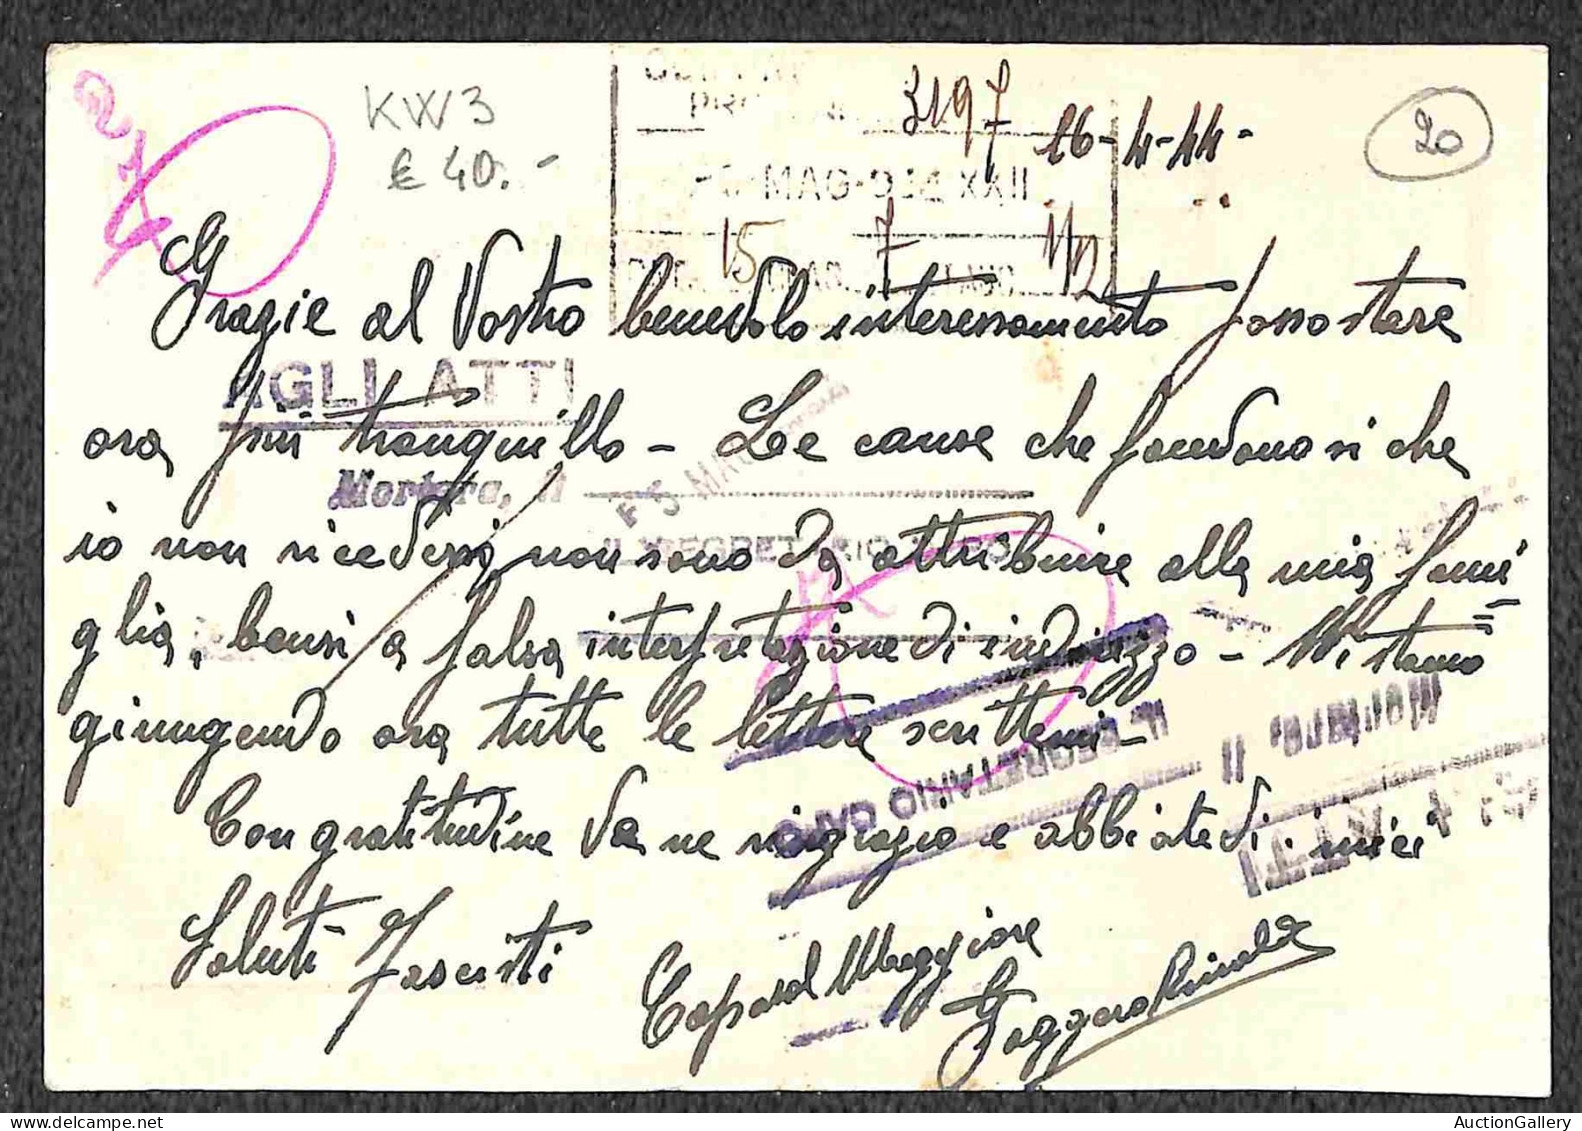 KW3
€ 40.-
3197
16-4-44-
20
MAG-944 XXII
15 7
Grazie al Vostro benevolo interessamento posso stare
AGLI ATTI
ora più tranquillo - Le cause che facevano sì che
Mortara, li
io non ricevessi non sono da attribuire alla mia fami
glia, bensì a falsa interpretazione di indirizzo - Mi stanno
giungendo ora tutte le lettere scrittemi -
IL SEGRETARIO CAPO
Mortara, li
Con gratitudine Ve ne ringrazio e abbiatedi i miei
ATTI
Saluti Fascisti
Caporal Maggiore
Rinaldo
AuctionGallery.com